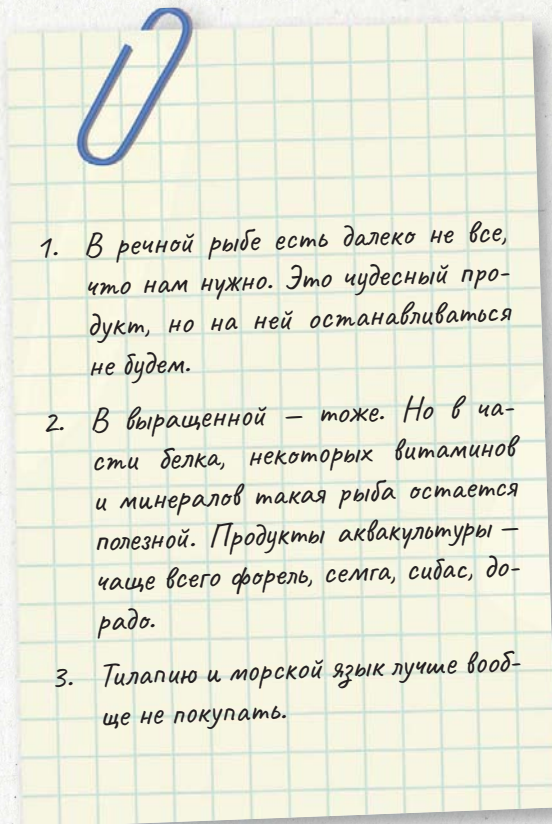 1. В речной рыбе есть далеко не все,
что нам нужно. Это чудесный про-
дукт, но на ней останавливаться
не будем.
2. В выращенной — тоже. Но в ча-
сти белка, некоторых витаминов
и минералов такая рыба остается
полезной. Продукты аквакультуры —
чаще всего форель, семга, сибас, до-
радо.
3. Тилапию и морской язык лучше вооб-
ще не покупать.